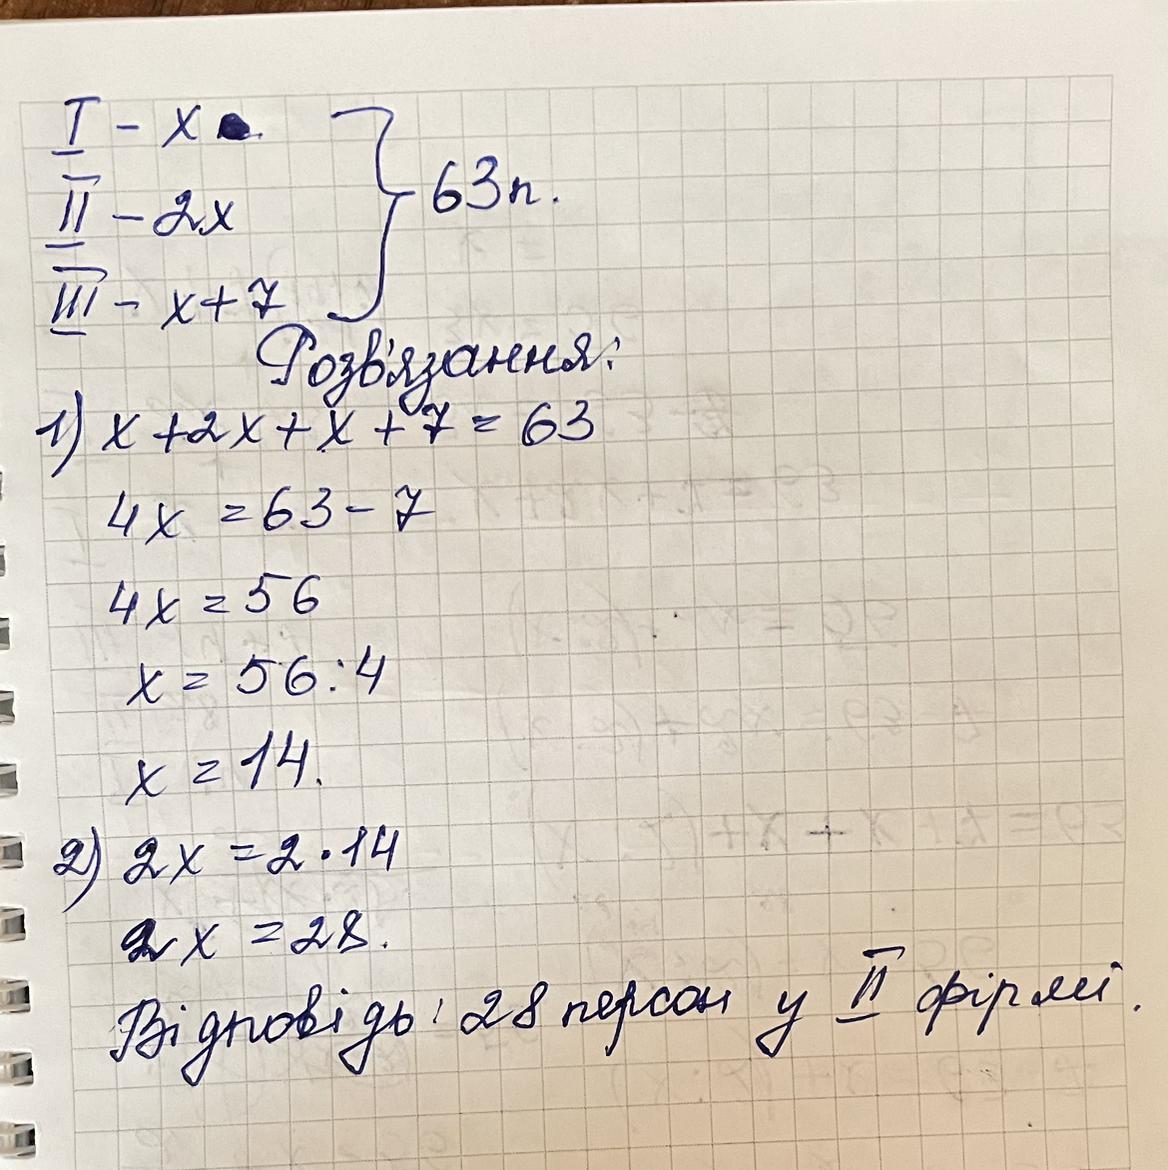 I - x
II - 2x
III - x+7
63п.
Розв'язання:
1) x+2x+x+7=63
4x=63-7
4x=56
x=56:4
x=14.
2) 2x=2·14
2x=28.
Відповідь: 28 персон у II фірмі.